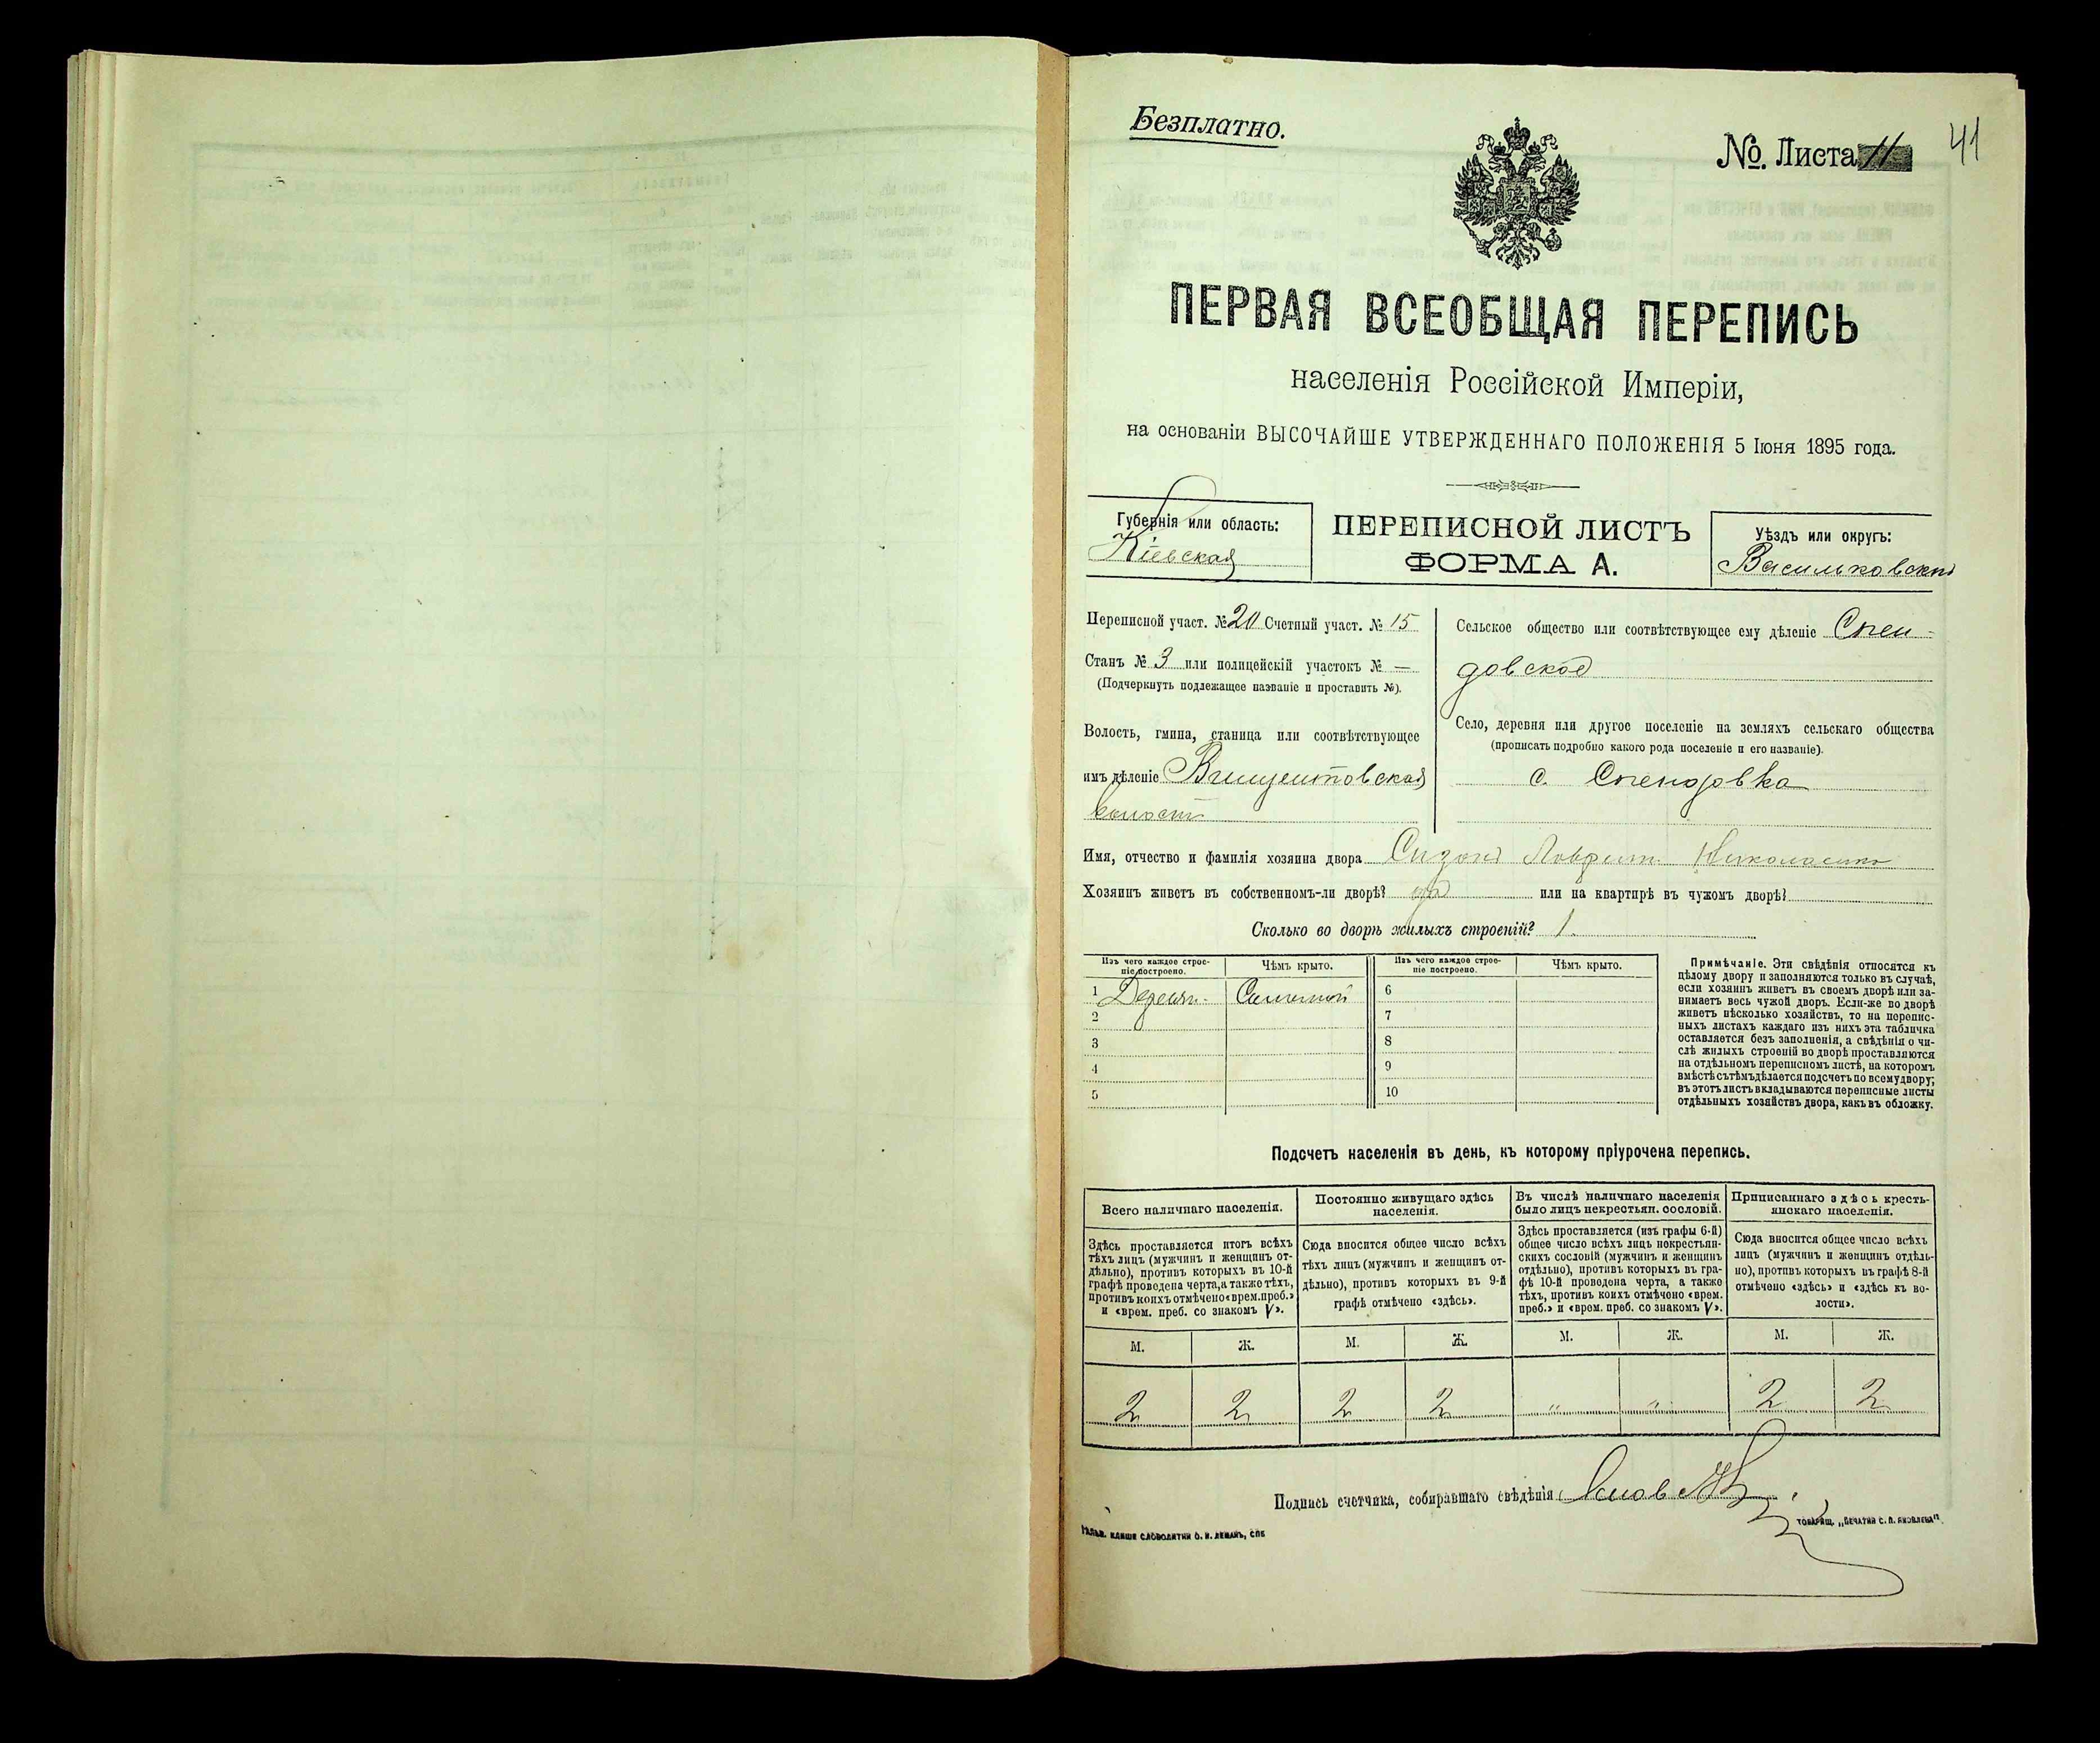 Безплатно.
№. Листа 11
41
ПЕРВАЯ ВСЕОБЩАЯ ПЕРЕПИСЬ
населенія Россійской Имперіи,
на основаніи ВЫСОЧАЙШЕ УТВЕРЖДЕННАГО ПОЛОЖЕНІЯ 5 Іюня 1895 года.
Губернія или область:
Кіевская
ПЕРЕПИСНОЙ ЛИСТЪ
ФОРМА А.
Уѣздъ или округъ:
Васильковскій
Переписной участ. № 20 Счетный участ. № 15
Станъ № 3 или полицейскій участокъ № —
(Подчеркнуть подлежащее названіе и проставить №).
Волость, гмина, станица или соотвѣтствующее
имъ дѣленіе Винцентовская
волость
Сельское общество или соотвѣтствующее ему дѣленіе Спен-
довское
Село, деревня или другое поселеніе на земляхъ сельскаго общества
(прописать подробно какого рода поселеніе и его названіе).
с. Спендовка
Имя, отчество и фамилія хозяина двора Николаенко
Хозяинъ живетъ въ собственномъ-ли дворѣ? да или на квартирѣ въ чужомъ дворѣ?
Сколько во дворѣ жилыхъ строеній? 1.
Изъ чего каждое строе-
ніе построено.
Чѣмъ крыто.
Изъ чего каждое строе-
ніе построено.
Чѣмъ крыто.
1 Деревян. Соломой
2
3
4
5
6
7
8
9
10
Примѣчаніе. Эти свѣдѣнія относятся къ
цѣлому двору и заполняются только въ случаѣ,
если хозяинъ живетъ въ своемъ дворѣ или за-
нимаетъ весь чужой дворъ. Если-же во дворѣ
живетъ нѣсколько хозяйствъ, то на перепис-
ныхъ листахъ каждаго изъ нихъ эта табличка
оставляется безъ заполненія, а свѣдѣнія о чи-
слѣ жилыхъ строеній во дворѣ проставляются
на отдѣльномъ переписномъ листѣ, на которомъ
вмѣстѣ съ тѣмъ дѣлается подсчетъ по всему двору;
въ этотъ листъ вкладываются переписные листы
отдѣльныхъ хозяйствъ двора, какъ въ обложку.
Подсчетъ населенія въ день, къ которому пріурочена перепись.
Всего наличнаго населенія.
Здѣсь проставляется итогъ всѣхъ
тѣхъ лицъ (мужчинъ и женщинъ от-
дѣльно), противъ которыхъ въ 10-й
графѣ проведена черта, а также тѣхъ,
противъ коихъ отмѣчено «врем. преб.»
и «врем. преб. со знакомъ V».
Постоянно живущаго здѣсь
населенія.
Сюда вносится общее число всѣхъ
тѣхъ лицъ (мужчинъ и женщинъ от-
дѣльно), противъ которыхъ въ 9-й
графѣ отмѣчено «здѣсь».
Въ числѣ наличнаго населенія
было лицъ некрестьян. сословій.
Здѣсь проставляется (изъ графы 6-й)
общее число всѣхъ лицъ некрестьян-
скихъ сословій (мужчинъ и женщинъ
отдѣльно), противъ которыхъ въ гра-
фѣ 10-й проведена черта, а также
тѣхъ, противъ коихъ отмѣчено «врем.
преб.» и «врем. преб. со знакомъ V».
Приписаннаго здѣсь кресть-
янскаго населенія.
Сюда вносится общее число всѣхъ
лицъ (мужчинъ и женщинъ отдѣль-
но), противъ которыхъ въ графѣ 8-й
отмѣчено «здѣсь» и «здѣсь къ во-
лости».
М. Ж. М. Ж. М. Ж. М. Ж.
2 2 2 2 " " 2 2
Подпись счетчика, собиравшаго свѣдѣнія
КЛИШЕ СЛОВОЛИТНИ О. И. ЛЕМАНЪ, СПБ
ТОВАРИЩ. „ПЕЧАТНЯ С. П. ЯКОВЛЕВА".